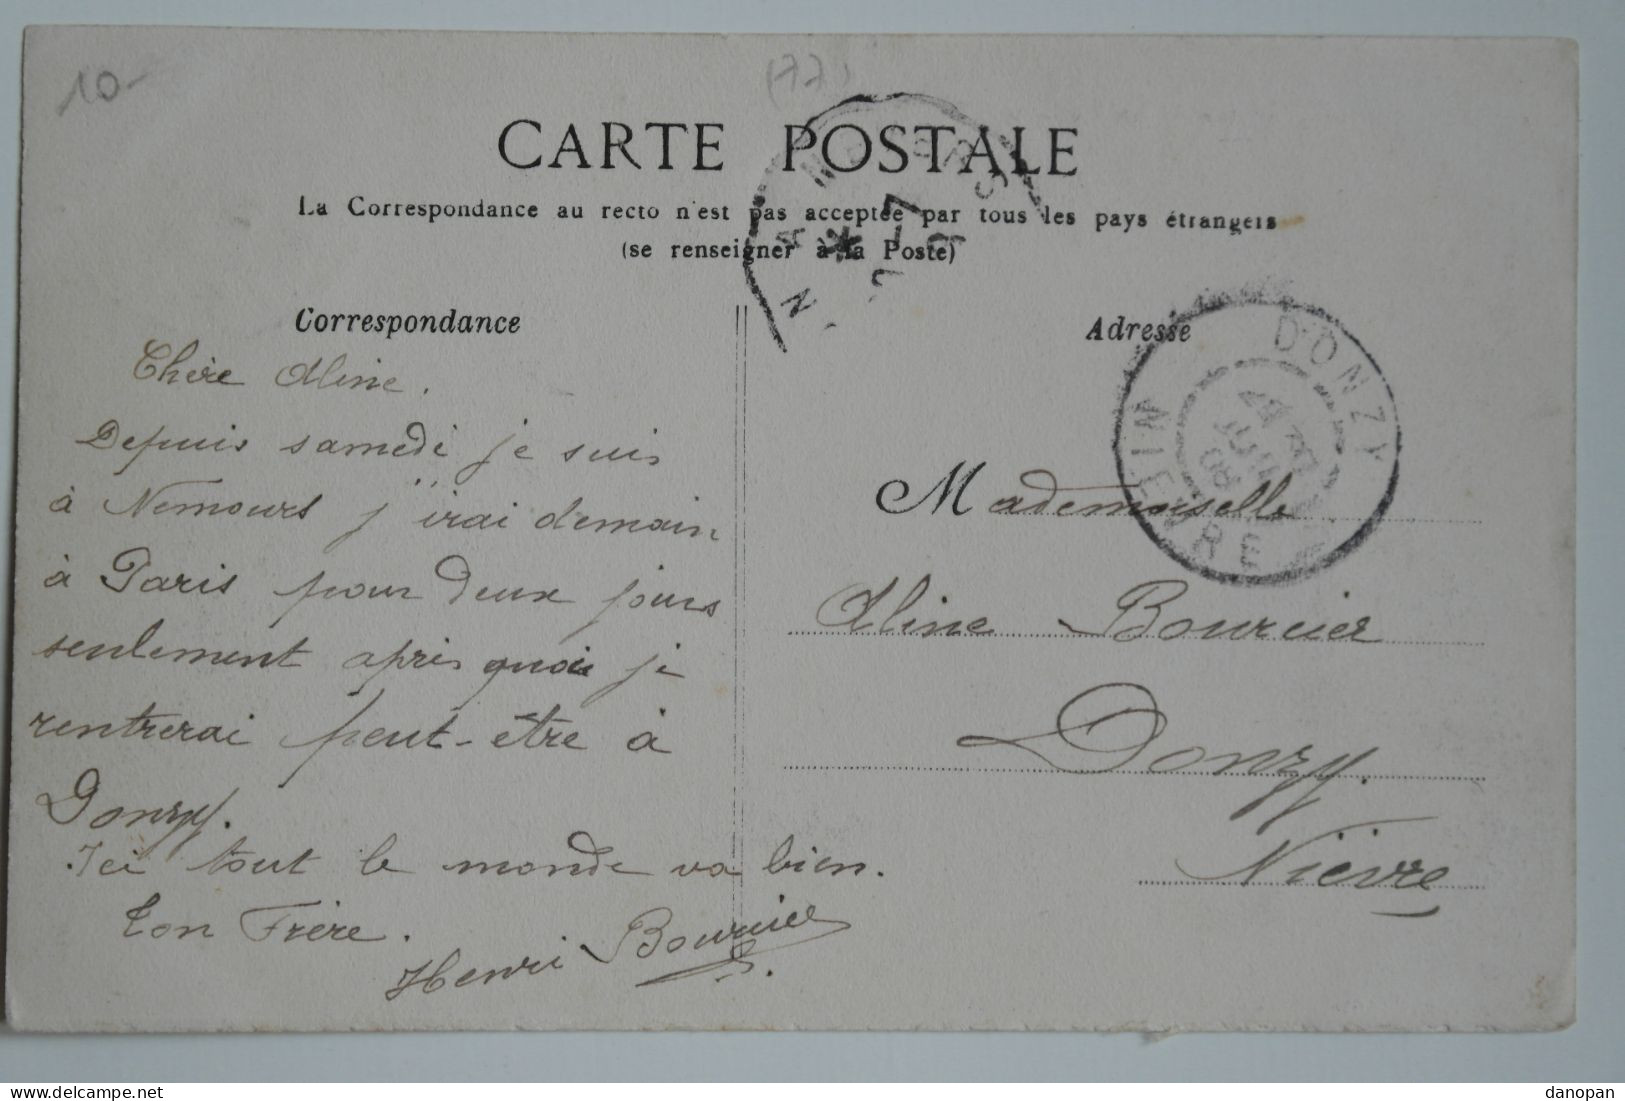 10-
(77)
CARTE POSTALE
La Correspondance au recto n'est pas acceptée par tous les pays étrangers
(se renseigner à la Poste)
Correspondance
Adresse
DONZY
NIEVRE
08
Chère Aline.
Depuis samedi je suis
à Nemours j'irai demain
à Paris pour deux jours
seulement après quoi je
rentrerai peut-être à
Donzy.
Ici tout le monde va bien.
Ton Frère.
Henri Bourcier
Mademoiselle
Aline Bourcier
Donzy.
Nièvre
danopan